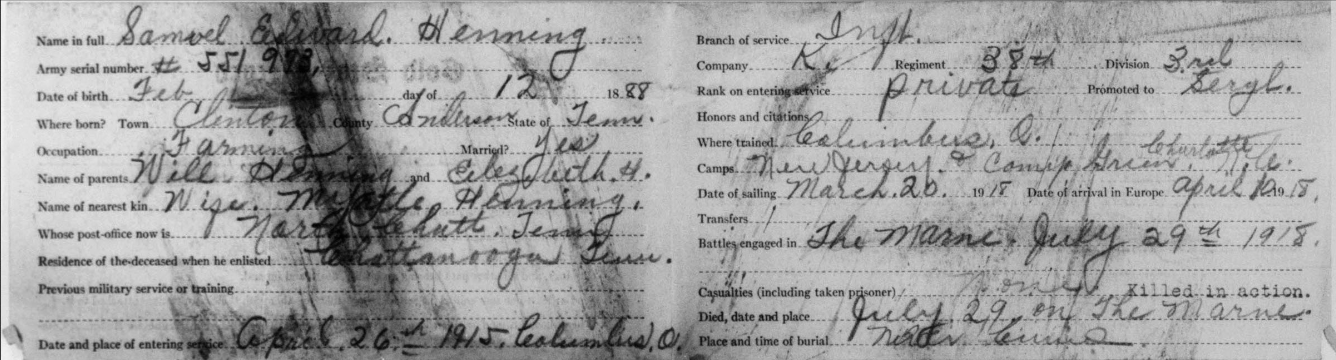 Name in full Samuel Edward. Henning
Army serial number # 551 973,
Date of birth Feb day of 12 1888
Where born? Town Clinton County Anderson State of Tenn.
Occupation Farming Married? Yes
Name of parents Will Henning and Elizabeth. H.
Name of nearest kin Wife. Myrtle Henning,
Whose post-office now is North Chatt. Tenn
Residence of the deceased when he enlisted Chattanooga Tenn.
Previous military service or training
Date and place of entering service April 26th 1915, Columbus, O.
Branch of service Inft.
Company K. Regiment 38th Division 3rd
Rank on entering service private Promoted to Sergt.
Honors and citations
Where trained Columbus, O.
Camps New Jersey. & Camp Green Charlotte N.C.
Date of sailing March. 20. 1918 Date of arrival in Europe April 1918,
Transfers
Battles engaged in The Marne. July 29th 1918,
Casualties (including taken prisoner) None. Killed in action.
Died, date and place July 29, on The Marne.
Place and time of burial Near